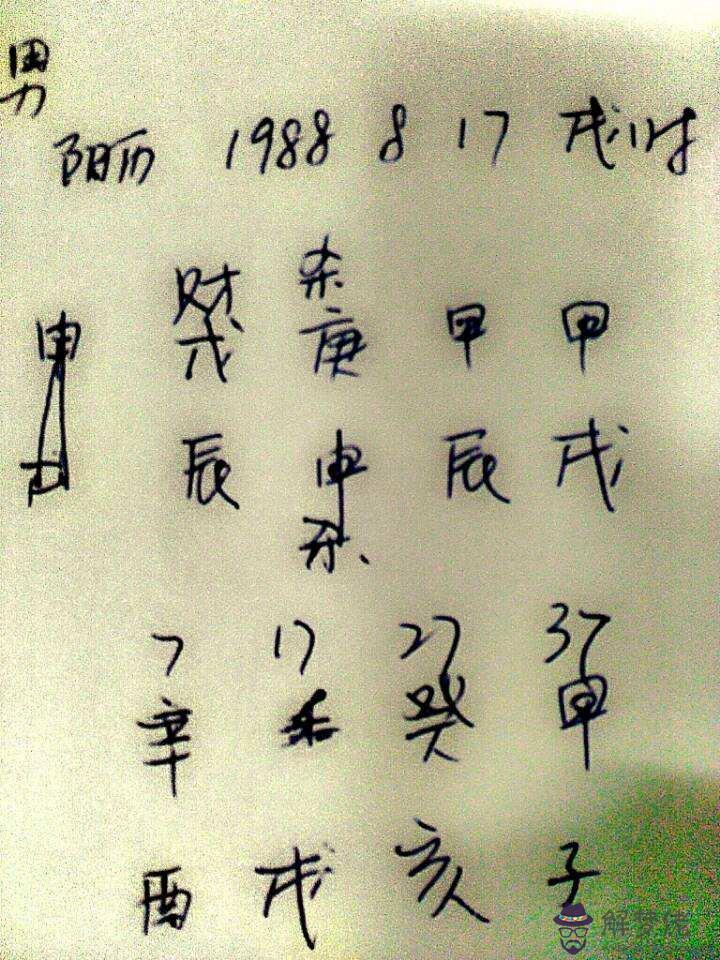 男
阳历 1988 8 17 戌时
财 杀
戊 庚 甲 甲
辰 申 辰 戌
杀
7 17 27 37
辛 癸 甲
酉 戌 亥 子
解梦佬